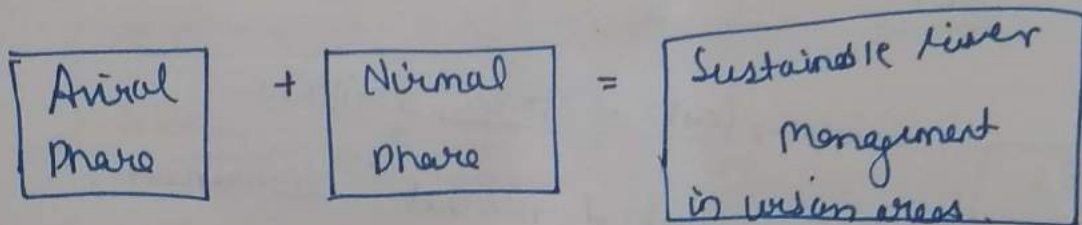 Aviral
Dhara
+
Nirmal
Dhara
=
Sustainable river
Management
in urban areas.